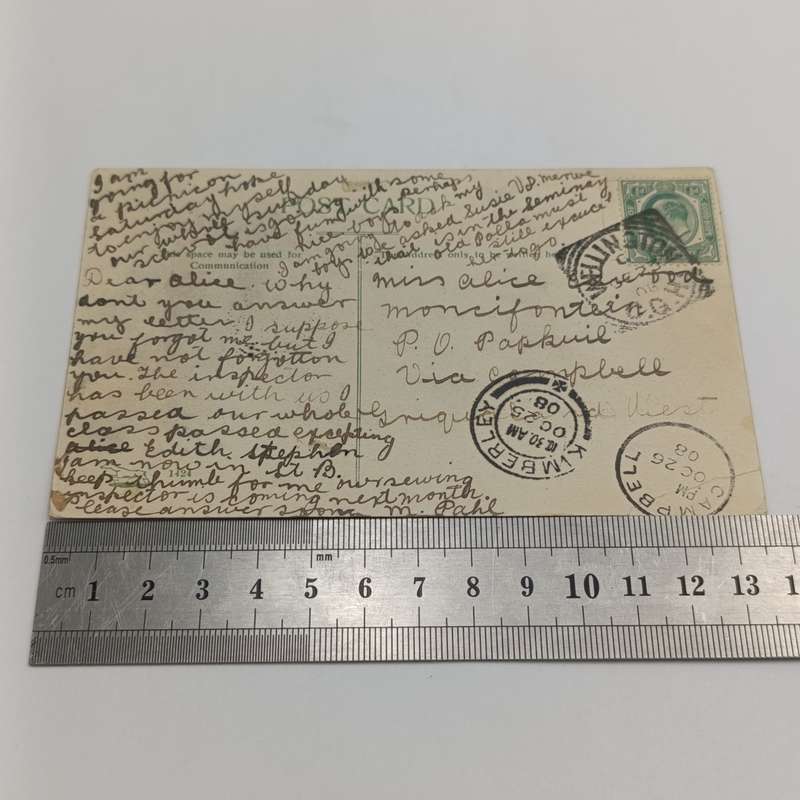 I am
going for
a picnic on
Saturday
to enjoy myself
our with some
school is going perhaps
have fun nice boys
I am going to ask my
boys we asked Susie V.D. merwe
that is in the Seminary
old Polla must
still excuse
POST CARD
space may be used for
Communication
only to be
Dear Alice. Why
dont you answer
my letter I suppose
you forgot me but I
have not forgotton
you. The inspector
has been with us I
passed our whole
class passed excepting
alice Edith Stephen
I am now in St B.
keep thumb for me our sewing
inspector is coming next month.
Please answer soon M. Pahl
1424
Miss Alice
P. O. Papkuil
Via Campbell
West
WELLINGTON
KIMBERLEY
10.30 AM
OC 25
08
CAMPBELL
PM
OC 26
08
0.5mm
mm
cm 1 2 3 4 5 6 7 8 9 10 11 12 13